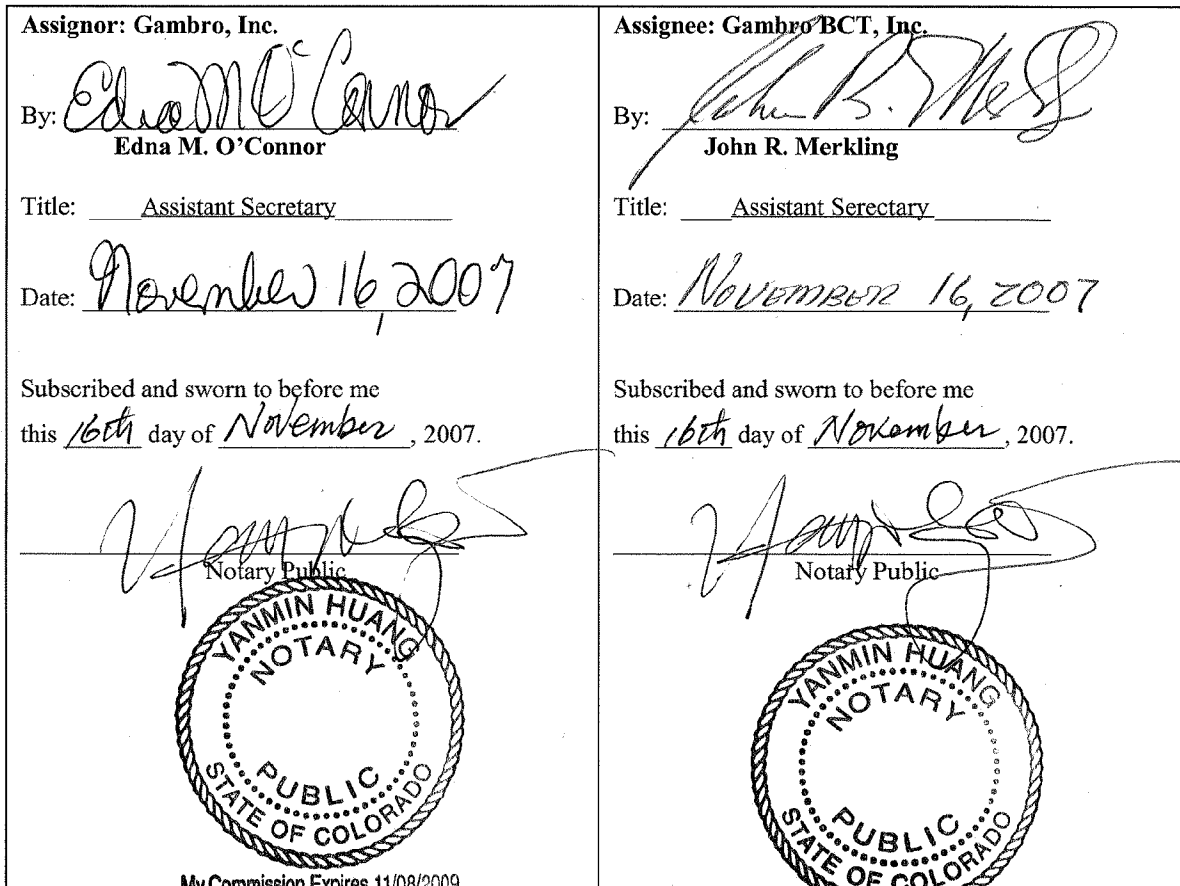 Assignor: Gambro, Inc.
By: Edna M O'Connor
Edna M. O'Connor
Title: Assistant Secretary
Date: November 16, 2007
Subscribed and sworn to before me
this 16th day of November, 2007.
Notary Public
YANMIN HUANG
NOTARY
PUBLIC
STATE OF COLORADO
My Commission Expires 11/08/2009
Assignee: Gambro BCT, Inc.
By: John R. Merkling
John R. Merkling
Title: Assistant Serectary
Date: NOVEMBER 16, 2007
Subscribed and sworn to before me
this 16th day of November, 2007.
Notary Public
YANMIN HUANG
NOTARY
PUBLIC
STATE OF COLORADO